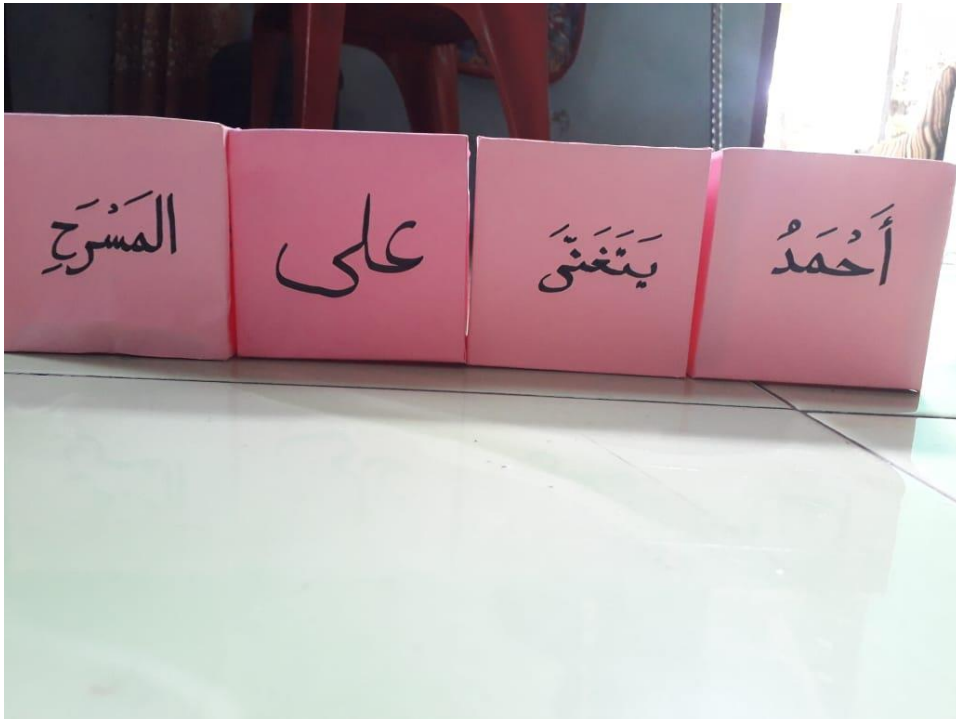 أَحْمَدُ يَتَغَنَّى على المَسْرَحِ